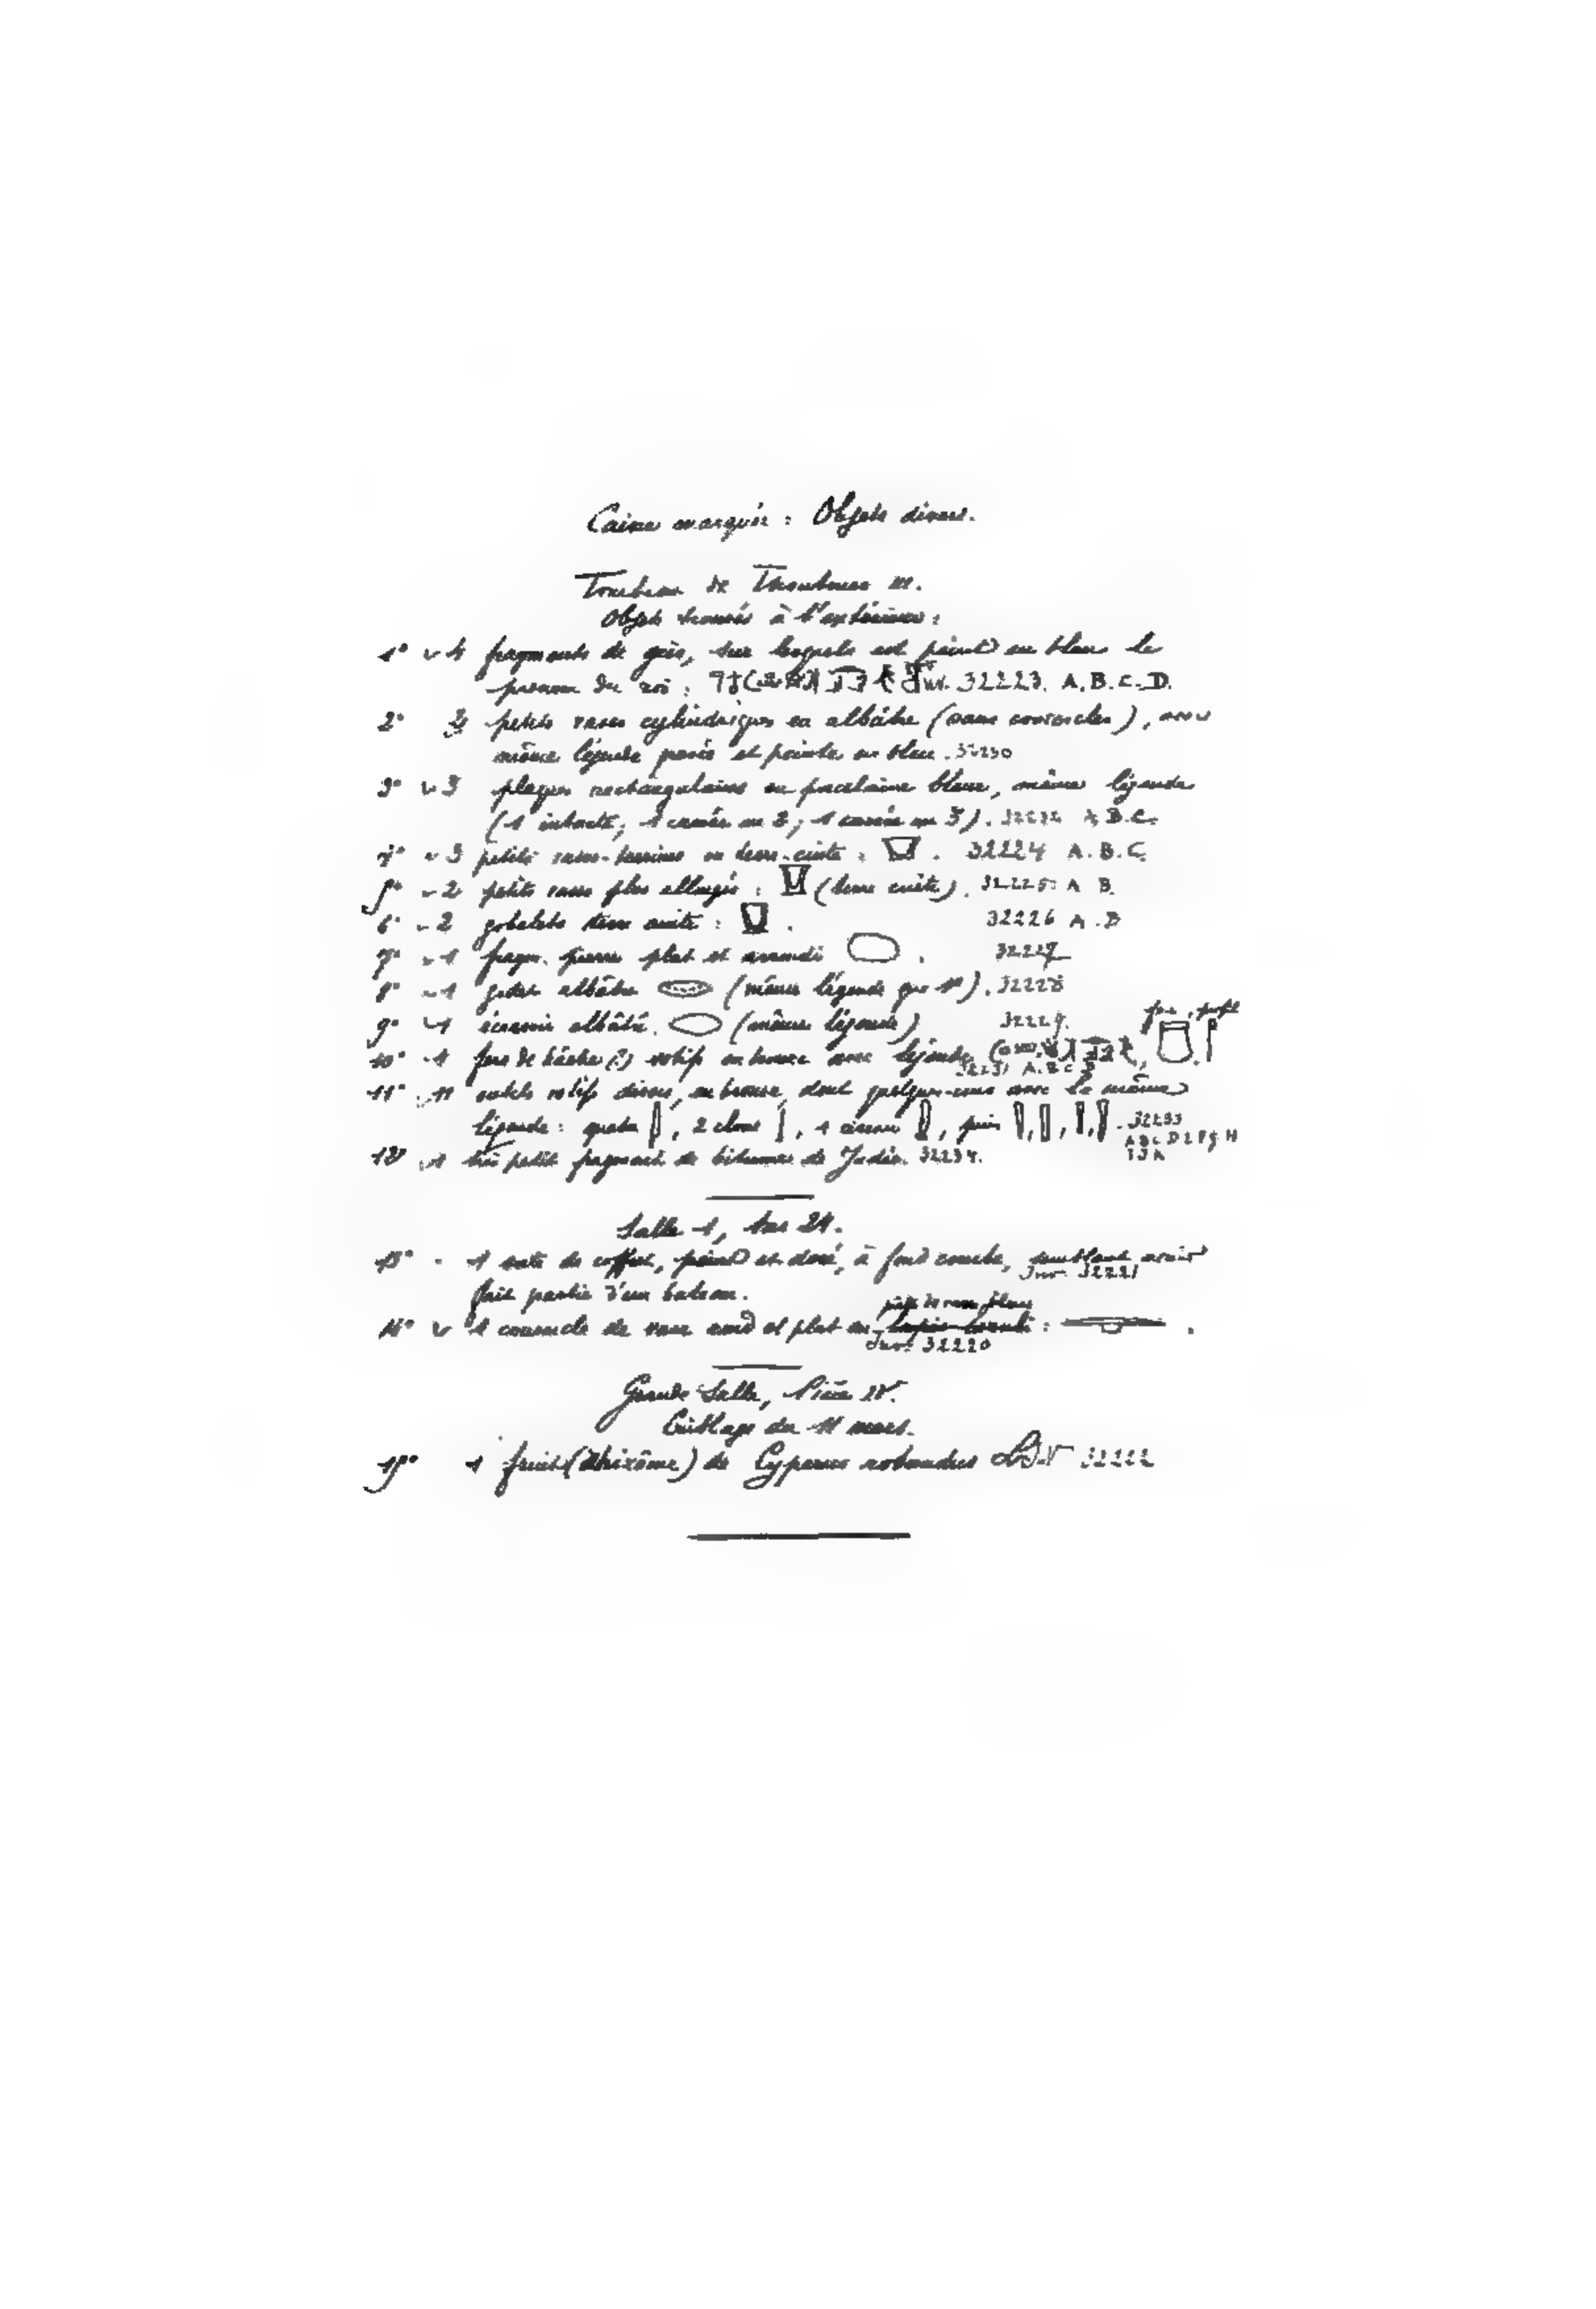 Caisse marquée : Objets divers.
Tombeau de Thoutmes III.
Objets trouvés à l'extérieur :
1° 4 fragments de grès, sur lesquels est peint en bleu le
prénom du roi : 32223. A.B.C.D.
2° petits vases cylindriques en albâtre (sans couvercles), avec
même légende gravée et peinte en bleu. 32230
3° 3 plaques rectangulaires en porcelaine bleue, même légende
(1 intacte; 1 cassée en 2; 1 cassée en 3). A.B.C.
4° 3 petits vases-terrines en terre-cuite : . 32224 A.B.C.
5° 2 petits vases plus allongés : (terre cuite). 32225 A B.
6° 2 gobelets terre cuite : . 32226 A.B
7° 1 fragm. pierre plat et arrondi . 32227
8° 1 godet albâtre (même légende que 1°). 32228
9° 1 albâtre. (même légende) 32229.
face, profil
10° 1 fers de hache (?) votifs en bronze avec légende ,
A.B.C.D
11° 11 outils votifs divers, en bronze, dont quelques-uns avec la même
légende : quatre , 2 clous , 1 ciseau , puis , , , . 32233
A B C D E F G H
I J K
12° 1 très petit fragment de bitume de Judée. 32234.
Salle 1, 21.
13° 1 de coffret, peint et doré, à fond courbe, semblant avoir
Inv. 32221
fait partie d'un bateau.
pâte de verre bleue
14° 1 couvercle de vase rond et plat en lapis-lazuli : .
Inv. 32220
Grande Salle, Pièce IV.
Criblage du 11 mars.
15° 1 fruit (Rhizôme) de Cyperus rotundus 32222